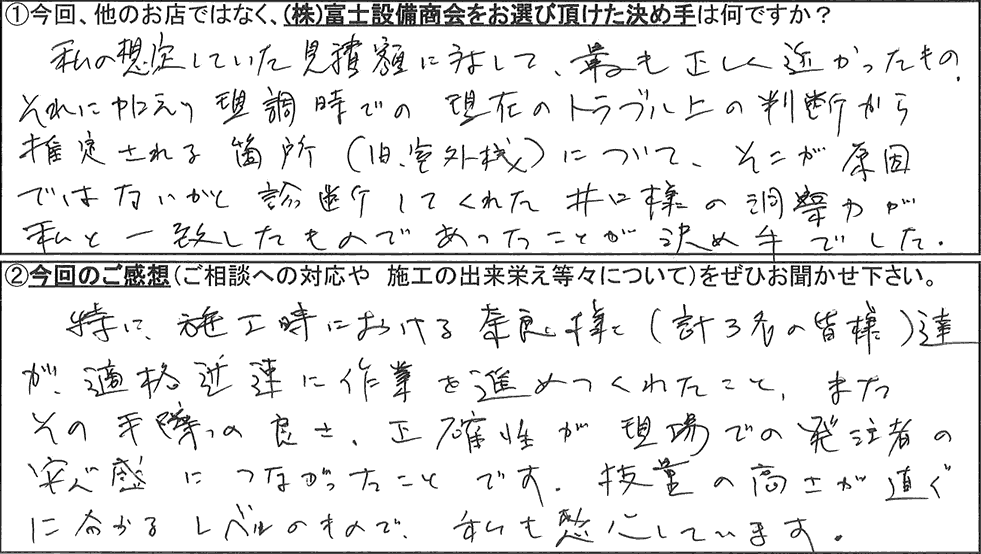 ①今回、他のお店ではなく、(株)富士設備商会をお選び頂けた決め手は何ですか？
私の想定していた見積額に対して、最も正しく近かったもの。
それに加え、現調時での現在のトラブル上の判断から
推定される箇所（旧、室外機）について、そこが原因
ではないかと診断してくれた井口様の洞察力が
私と一致したものであったことが決め手でした。
②今回のご感想(ご相談への対応や 施工の出来栄え等々について)をぜひお聞かせ下さい。
特に、施工時における奈良様と（計3名の皆様）達
が、適格迅速に作業を進めてくれたこと、また
その手際の良さ、正確性が現場での発注者の
安心感につながったことです。技量の高さが直ぐ
に分かるレベルのもので、私も感心しています。